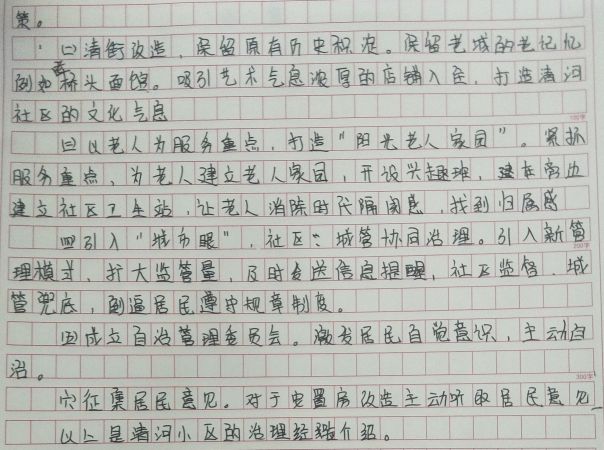 策。
㈡清街改造，保留原有历史积淀。保留老城的老记忆
例如桥头面馆。吸引艺术气息浓厚的店铺入住，打造清河
社区的文化气息
㈢以老人为服务重点，打造“阳光老人家园”。紧抓
服务重点，为老人建立老人家园，开设兴趣班，建在旁边
建立社区卫生站，让老人消除时代隔阂感，找到归属感
㈣引入“城市眼”，社区、城管协同治理。引入新管
理模式，扩大监管量，及时发送信息提醒，社区监督，城
管兜底，倒逼居民遵守规章制度。
㈤成立自治管理委员会。激发居民自觉意识，主动自
治。
㈥征集居民意见。对于安置房改造主动听取居民意见
以上是清河小区的治理经验介绍。
100字
200字
300字